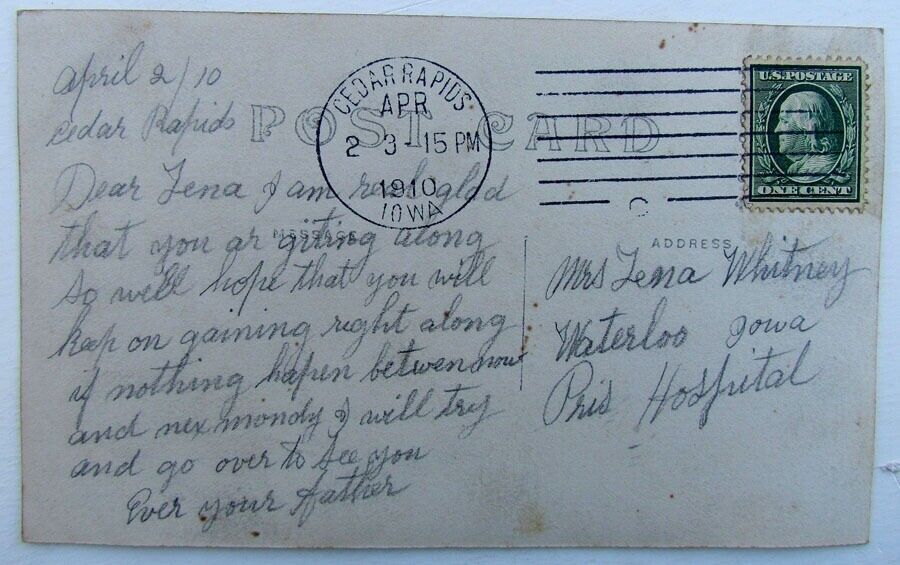 April 2/10
Cedar Rapids
POST CARD
CEDAR RAPIDS
APR
2 3-15 PM
1910
IOWA
U.S. POSTAGE
ONE CENT
Dear Lena I am real glad
that you ar giting along
MESSAGE
so well hope that you will
keep on gaining right along
if nothing hapen betwen now
and nex mondy I will try
and go over to see you
Ever your father
ADDRESS
Mrs Lena Whitney
Waterloo Iowa
Pris Hospital